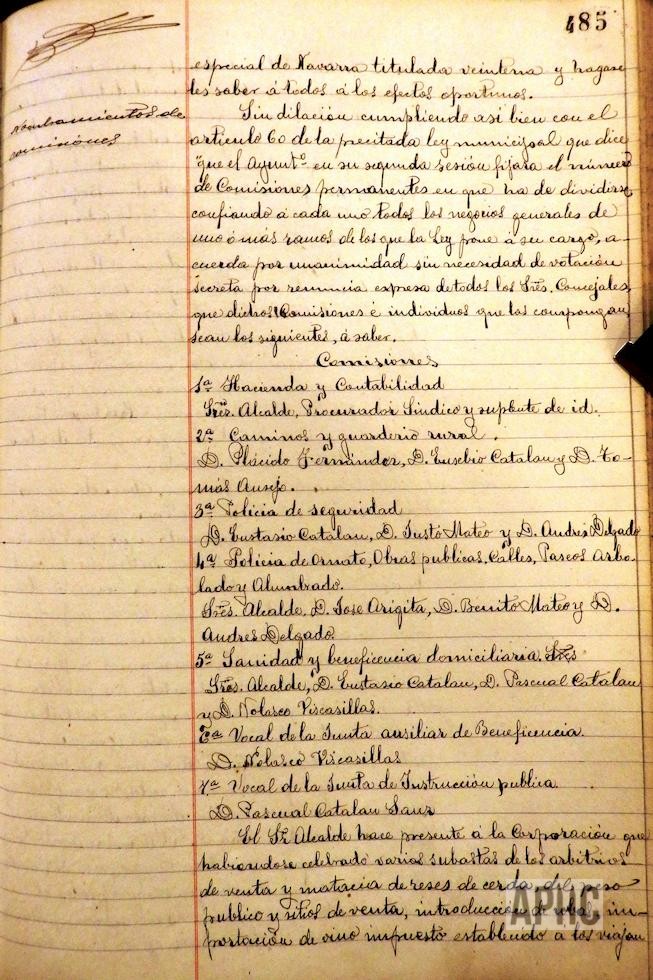 485
Nombramientos de
comisiones
especial de Navarra titulada veintena y hagase
les saber á todos á los efectos oportunos.
Sin dilación cumpliendo asi bien con el
articulo 60 de la precitada ley municipal que dice
"que el Ayuntº en su segunda sesión fijara el número
de Comisiones permanentes en que ha de dividirse
confiando á cada una todos los negocios generales de
uno ó más ramos de los que la Ley pone á su cargo, a-
cuerda por unanimidad sin necesidad de votación
secreta por renuncia expresa de todos los Sres. Concejales,
que dichas Comisiones é individuos que las compongan
sean los siguientes, á saber.
Comisiones
1ª Hacienda y Contabilidad
Sres. Alcalde, Procurador Sindico y suplente de id.
2ª Caminos y guarderio rural.
D. Plácido Fernández, D. Eusebio Catalan y D. To-
más Ausejo.
3ª Policia de seguridad
D. Eustasio Catalan, D. Justo Mateo y D. Andres Delgado
4ª Policia de ornato, Obras publicas, Calles, Paseos Arbo-
lado y Alumbrado.
Sres. Alcalde, D. Jose Arigita, D. Benito Mateo y D.
Andres Delgado.
5ª Sanidad y beneficencia domiciliaria. Sres
Sres. Alcalde, D. Eustasio Catalan, D. Pascual Catalan
y D. Nolasco Viscasillas.
Vocal de la Junta auxiliar de Beneficencia.
D. Nolasco Viscasillas
7ª Vocal de la Junta de Instrucción publica
D. Pascual Catalan Sanz
El Sr Alcalde hace presente á la Corporación que
habiendose celebrado varias subastas de los arbitrios
de venta y matacia de reses de cerda, del peso
publico y sitios de venta, introducción de uba, im-
portación de vino impuesto establecido a los viajan
APHC